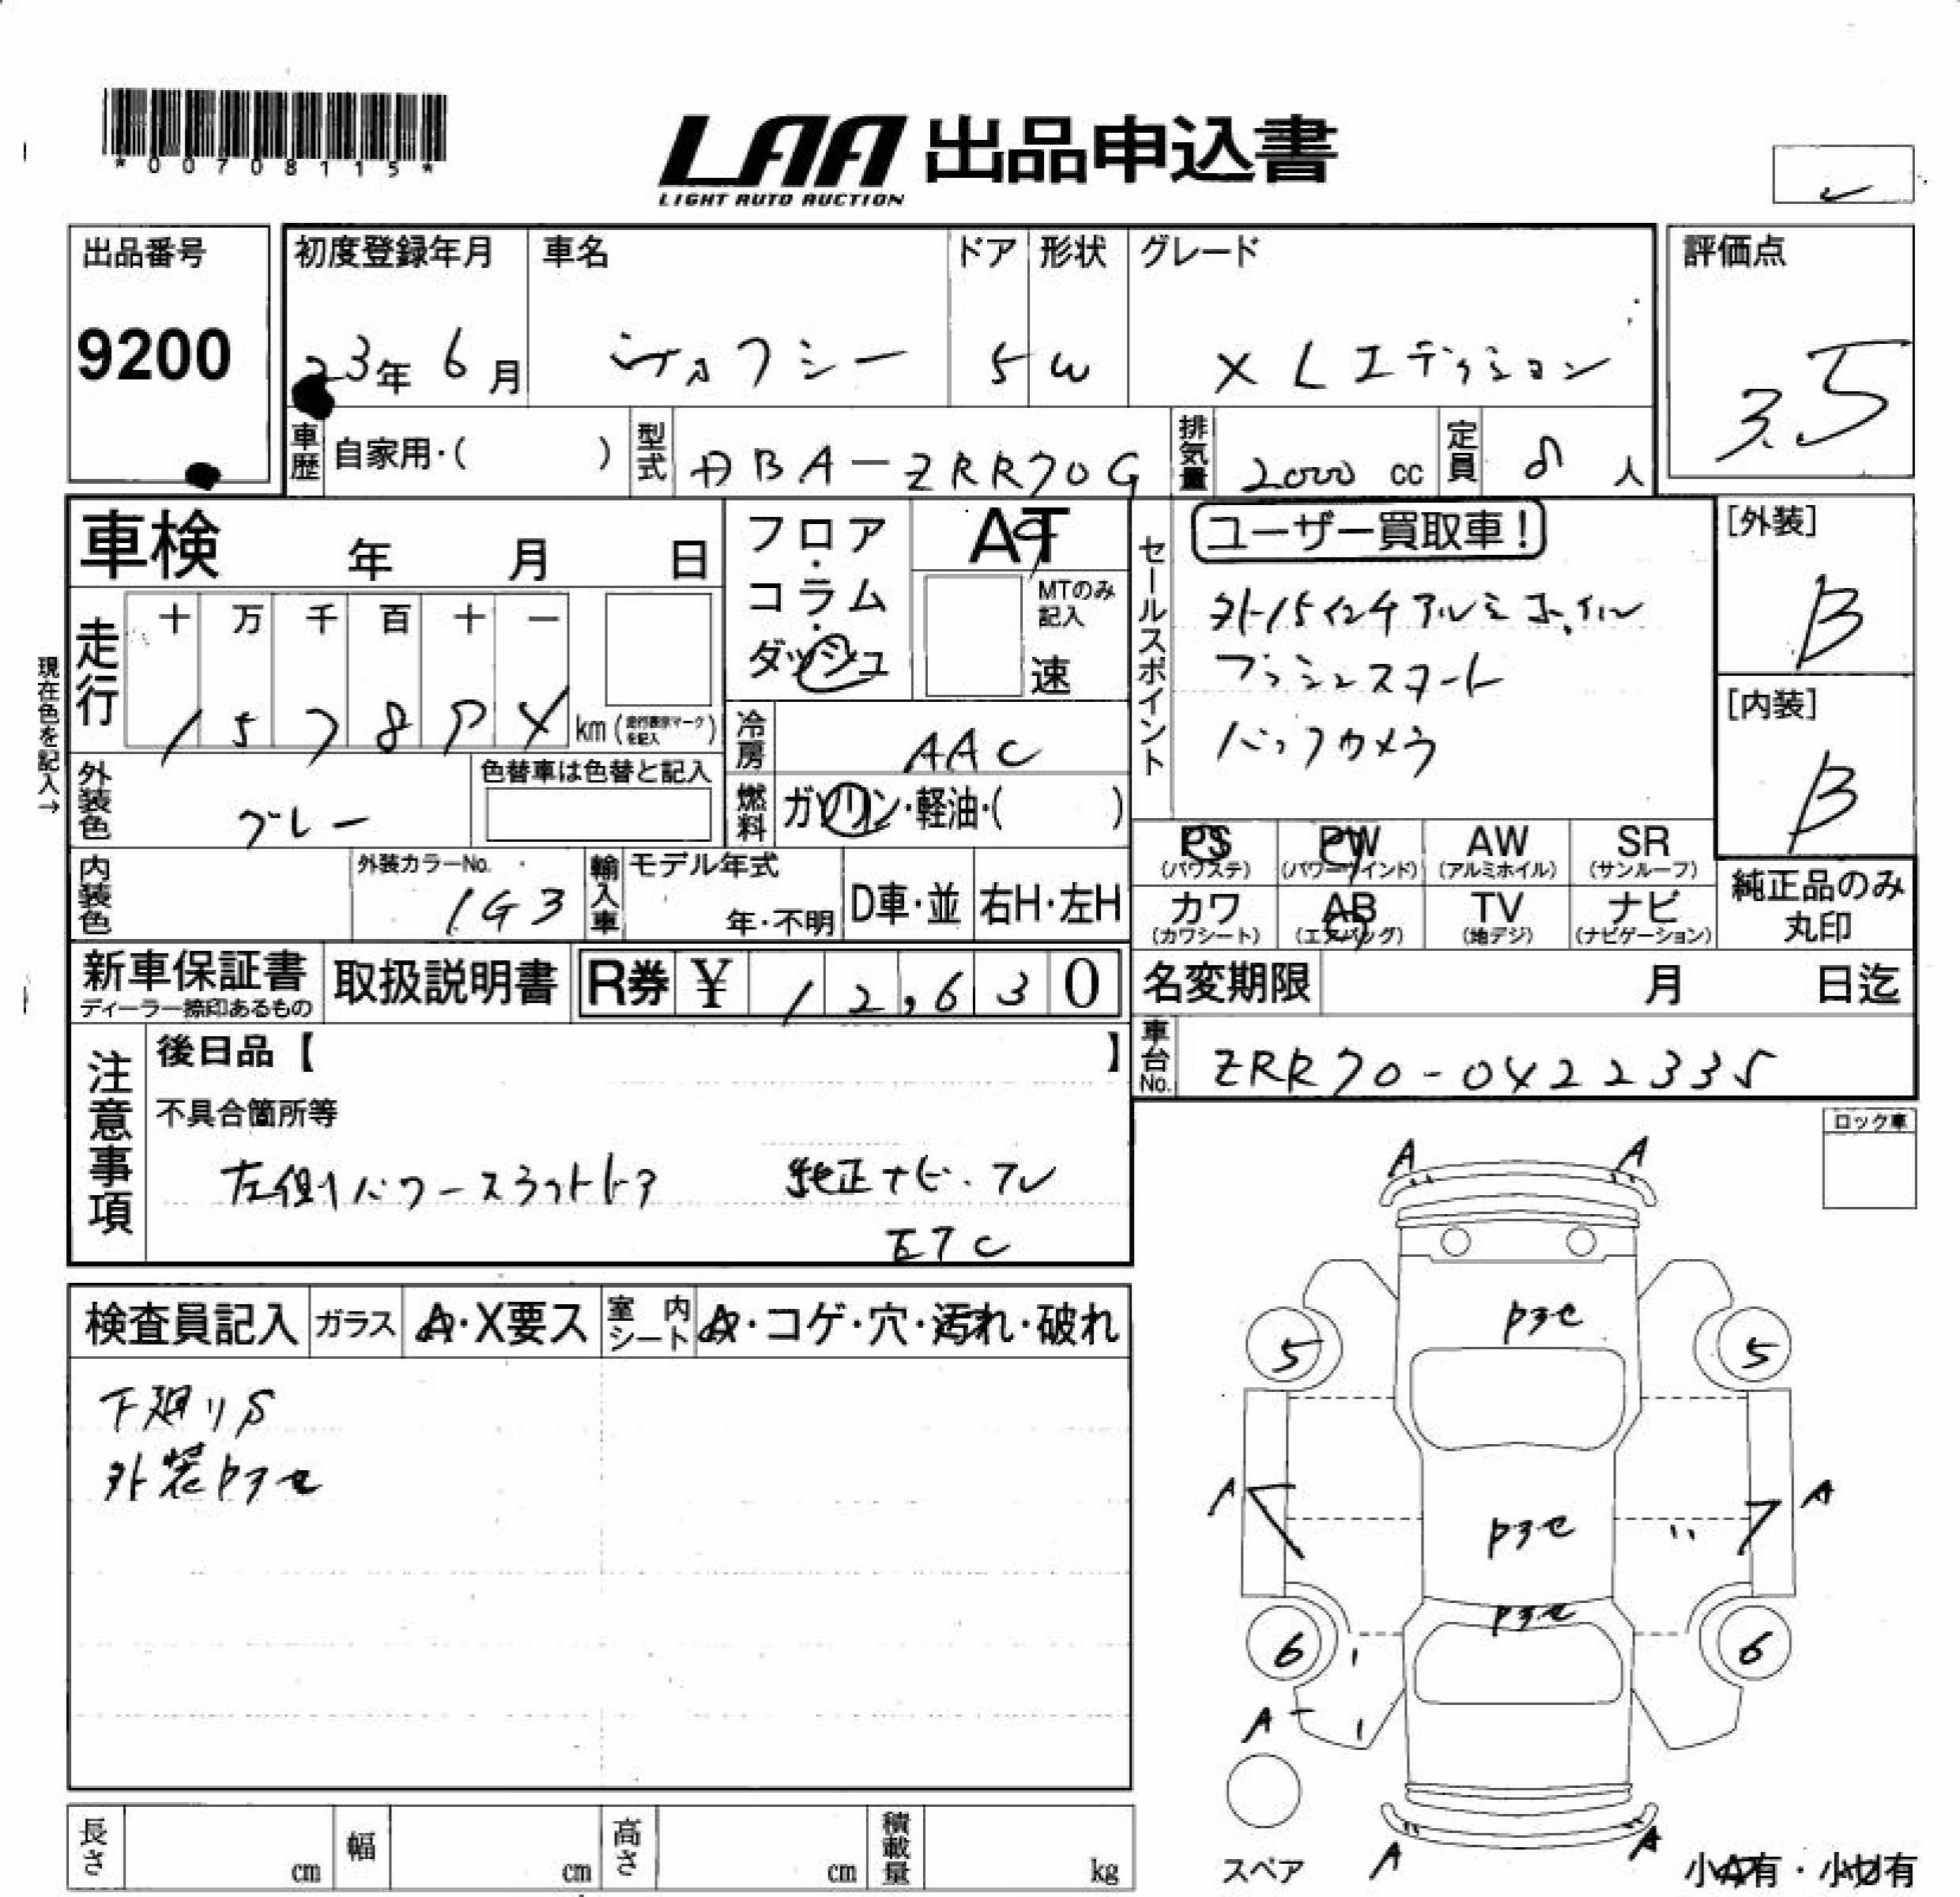 *00708115*
LAA 出品申込書
LIGHT AUTO AUCTION
出品番号
9200
初度登録年月
23年 6月
車名
ヴォクシー
ドア
5
形状
W
グレード
X Lエディション
評価点
3.5
車歴
自家用・( )
型式
DBA-ZRR70G
排気量
2000 cc
定員
8 人
車検 年 月 日
現在色を記入→
走行
十 万 千 百 十 一
km(走行表示マークを記入)
フロア・コラム・ダッシュ
AT
MTのみ記入
速
冷房
AAC
燃料
ガソリン・軽油・( )
外装色
グレー
色替車は色替と記入
内装色
外装カラーNo.
1G3
輸入車
モデル年式
年・不明
D車・並
右H・左H
セールスポイント
ユーザー買取車!
外15インチアルミホイル
プッシュスタート
バックカメラ
[外装]
B
[内装]
B
PS
(パワステ)
PW
(パワーウインド)
AW
(アルミホイル)
SR
(サンルーフ)
カワ
(カワシート)
AB
(エアバッグ)
TV
(地デジ)
ナビ
(ナビゲーション)
純正品のみ
丸印
新車保証書
ディーラー捺印あるもの
取扱説明書
R券 ¥ 12,630
名変期限 月 日迄
車台No.
ZRR70-0422335
注意事項
後日品【 】
不具合箇所等
左側パワースライドドア 純正ナビ・TV
ETC
ロック車
検査員記入
ガラス
A・X要ス
室内シート
A・コゲ・穴・汚れ・破れ
下廻りS
外装色アセ
A A
色アセ
5 5
A A
色アセ
色アセ
6 6
A
A A
スペア
小A有・小U有
長さ cm
幅 cm
高さ cm
積載量 kg